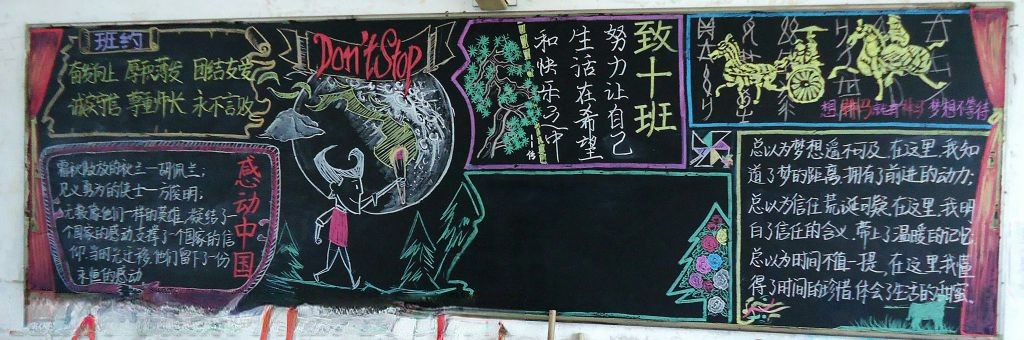 班约
奋发向上 厚积薄发 团结友爱
诚实守信 尊重师长 永不言败
感动中国
霜秋敝放的秋兰一胡佩兰；
见义勇为的侠士一方俊明，
无数像他们一样的英雄，凝结了一
个国家的感动，支撑了一个国家的信
仰，当时光迁移，他们留下了一份
永恒的感动
Don't Stop
致十班
努力让自己
生活在希望
和快乐之中
梦想不等待
总以为梦想遥不可及，在这里，我知
道了梦的距离，拥有了前进的动力；
总以为信任荒诞可疑，在这里，我明
白了信任的含义，带上了温暖的记忆
总以为时间不值一提，在这里我懂
得了时间的珍惜，体会了生活的甜蜜